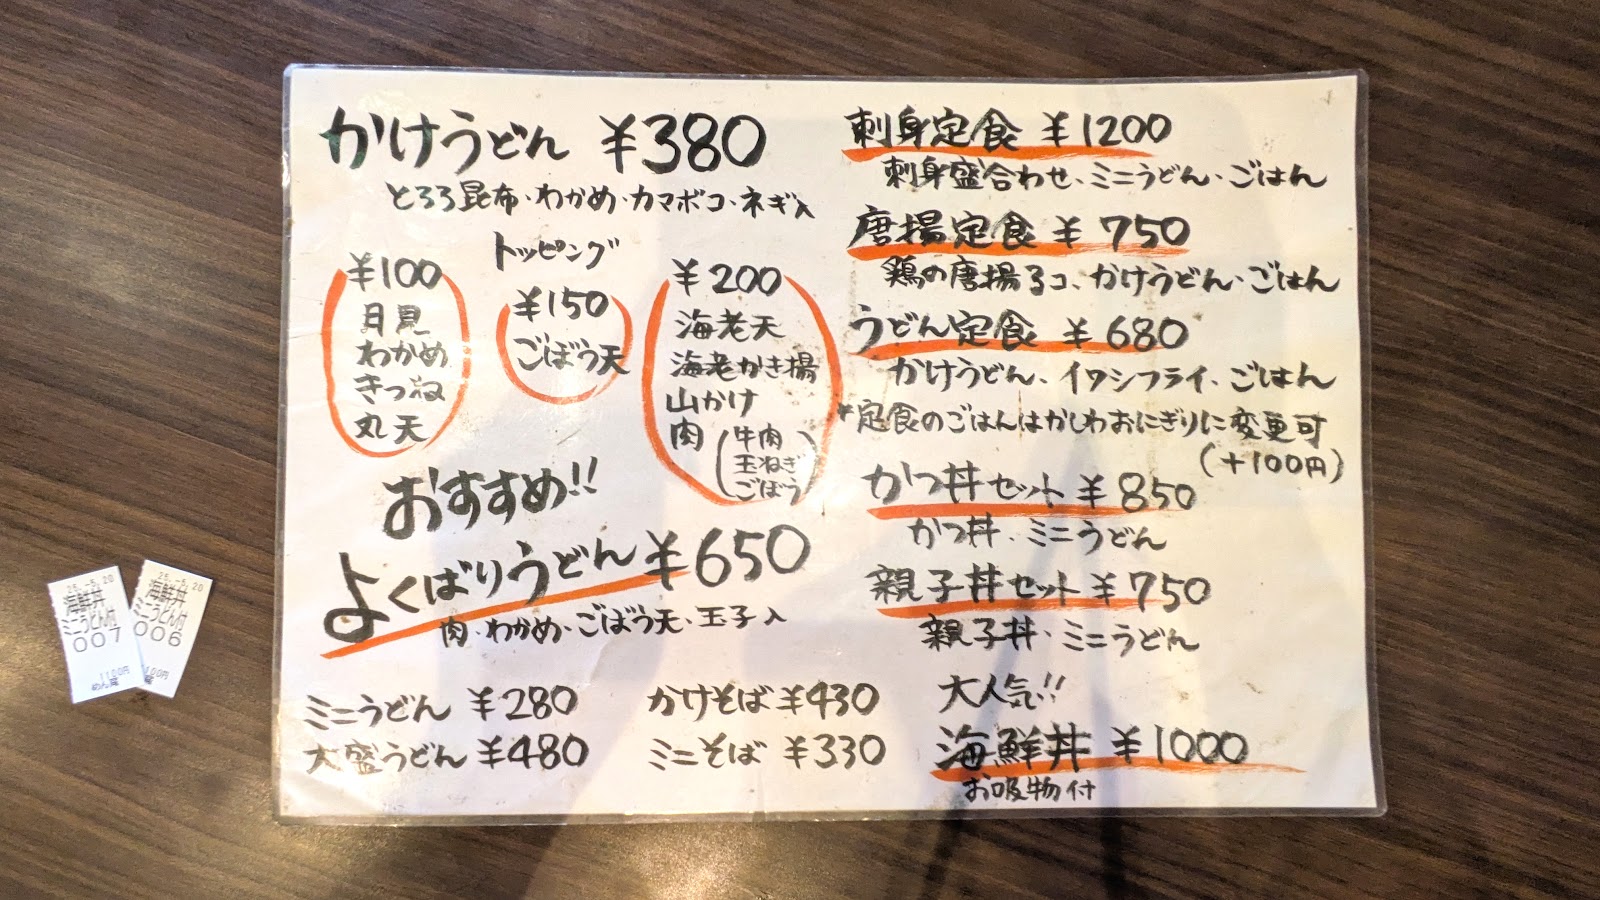 かけうどん ¥380
とろろ昆布・わかめ・カマボコ・ネギ入
トッピング
¥100
月見
わかめ
きつね
丸天
¥150
ごぼう天
¥200
海老天
海老かき揚
山かけ
肉(牛肉
玉ねぎ
ごぼう)
おすすめ!!
よくばりうどん ¥650
肉・わかめ・ごぼう天・玉子入
ミニうどん ¥280
大盛うどん ¥480
かけそば ¥430
ミニそば ¥330
刺身定食 ¥1200
刺身盛合わせ、ミニうどん・ごはん
唐揚定食 ¥750
鶏の唐揚3コ、かけうどん・ごはん
うどん定食 ¥680
かけうどん、イワシフライ、ごはん
*定食のごはんはかしわおにぎりに変更可
(+100円)
かつ丼セット ¥850
かつ丼・ミニうどん
親子丼セット ¥750
親子丼・ミニうどん
大人気!!
海鮮丼 ¥1000
お吸物付
25.-5.20
海鮮丼
ミニうどん付
007
1100円
25.-5.20
海鮮丼
ミニうどん付
006
100円